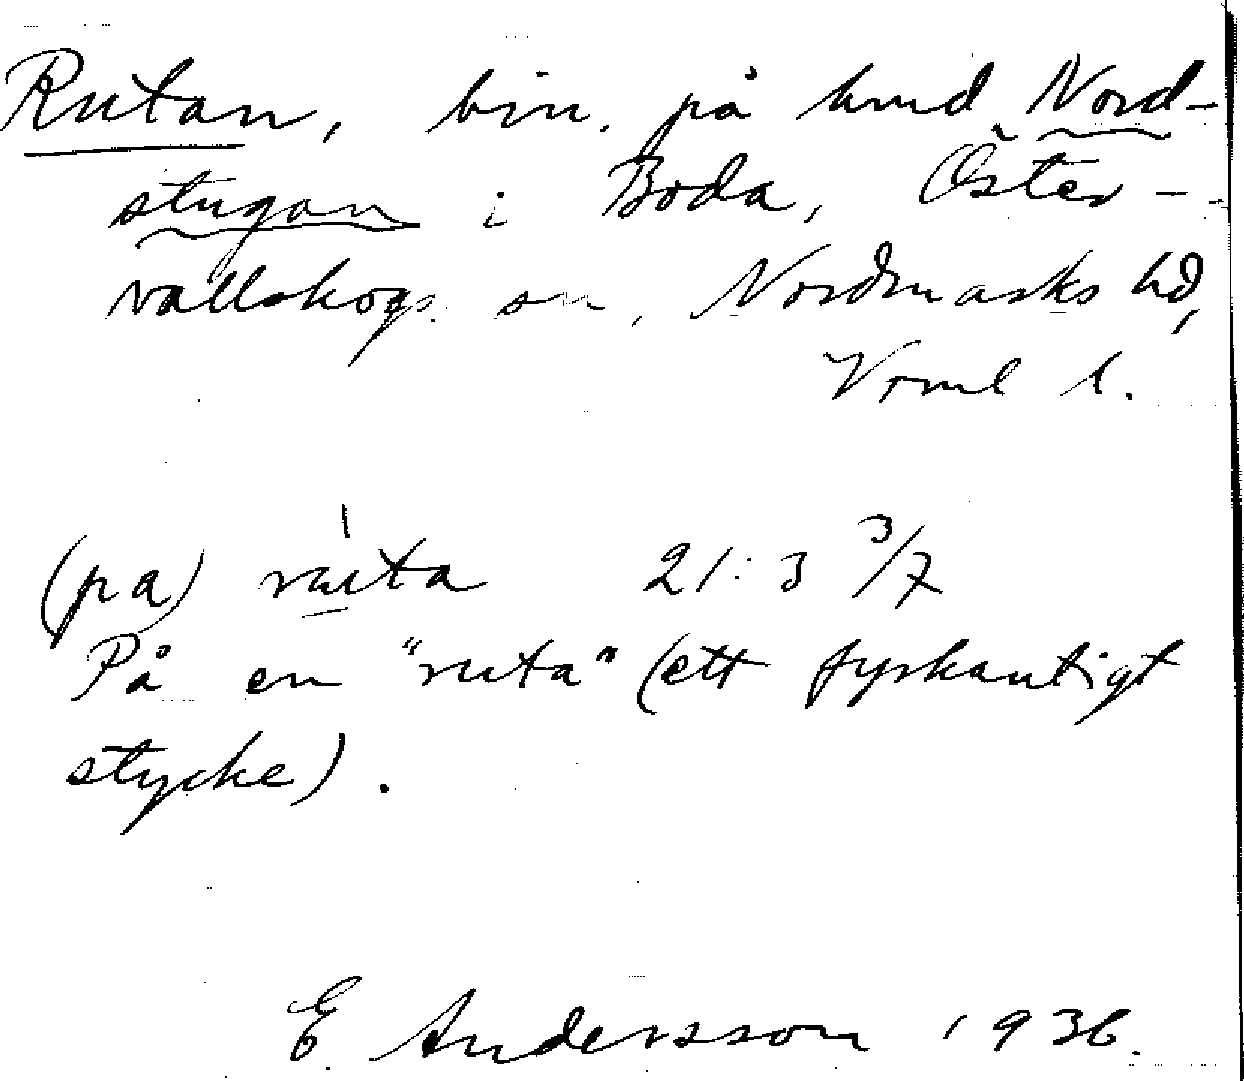 Rutan, bin. på hmd Nord-
stugan i Boda, Öster-
vallskogs sn, Nordmarks hd,
Vrml l.
(pa) ruta 21:3 3/7
På en "ruta" (ett fyrkantigt
stycke).
E Andersson 1936.